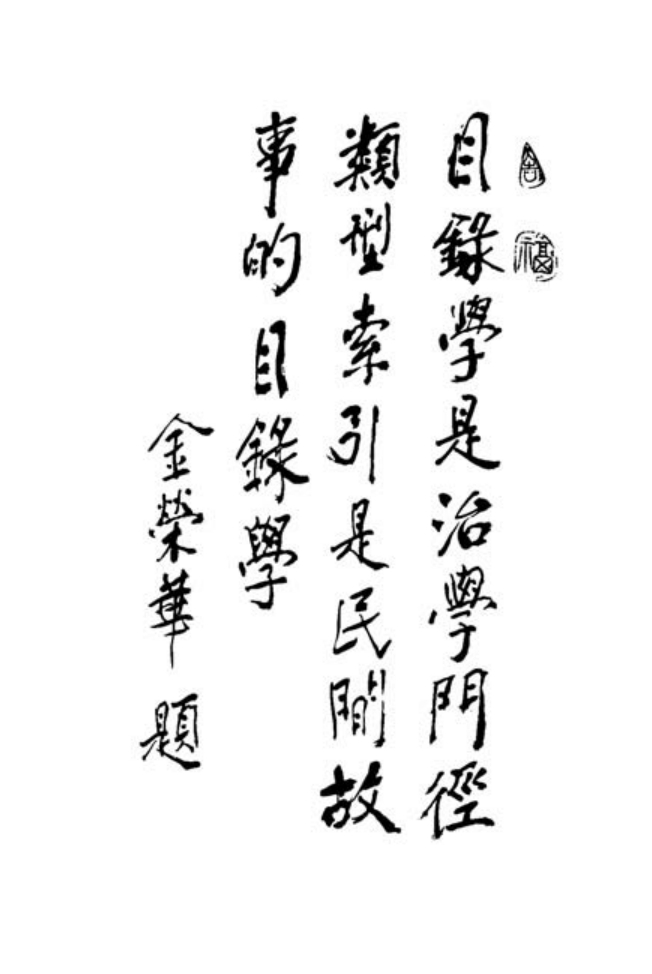 目錄學是治學門徑
類型索引是民間故
事的目錄學
金榮華 題